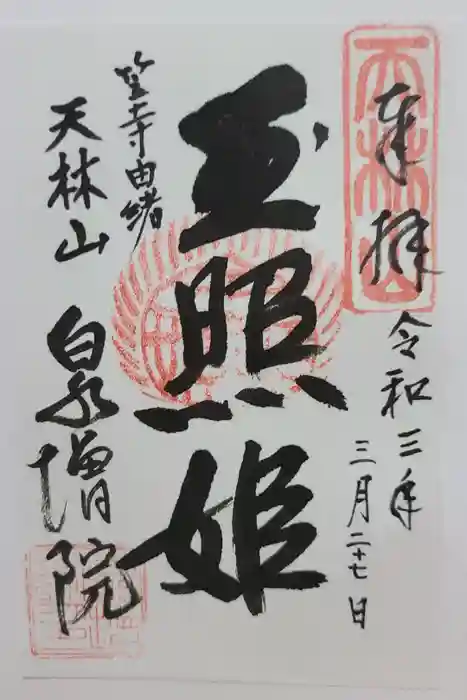 奉拝
令和三年
三月二十七日
玉照姫
笠寺由緒
天林山
泉増院
天林山